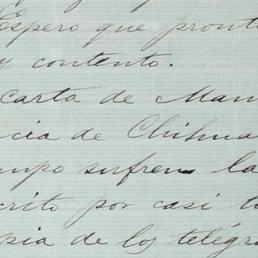 Espero que pront
y contento.
carta de Man
cia de Chihua
mpo sufren la
crito por casi t
pia de los telégra